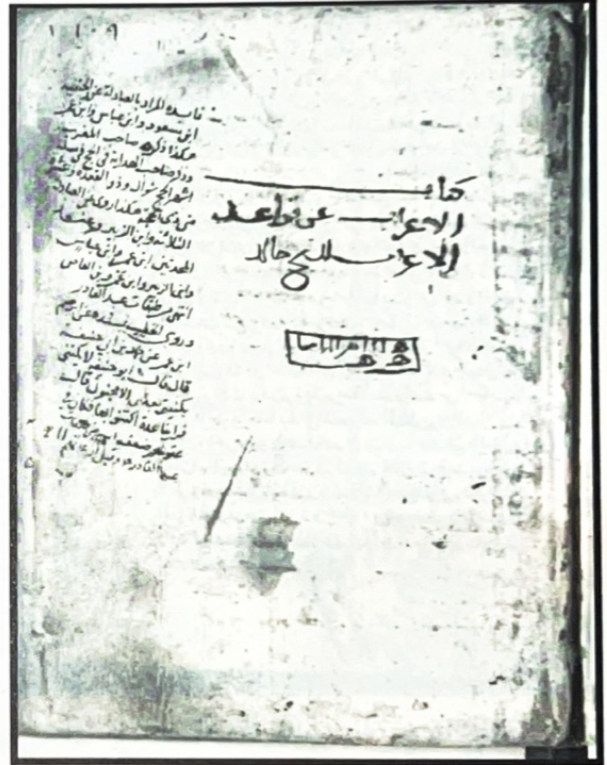 ١١٠٩
كتاب
الاعراب عن قواعد
الاعراب للشيخ خالد
فائدة المراد بالعبادلة عند الحنفية
ابن مسعود وابن عباس وابن عمر
هكذا ذكره صاحب المغرب
وذكر صاحب الهداية في الحج في مسئلة
اشهر الحج شوال وذو القعدة وعشر
من ذي الحجة هكذا روي عن العبادلة
الثلاثة وابن الزبير وعند
المحدثين ابن عمر وابن عباس
وابن الزبير وابن عمرو بن العاص
انتهى طبقات عبد القادر
وروى الخطيب بسنده عن
ابن عمر عن ابي حنيفة
قال قال ابو حنيفة لا يكتني
بكنيتي بعدي الا مجنون قال
فراينا عدة اكتنوا بها فكان في
عقولهم ضعف
عبد القادر